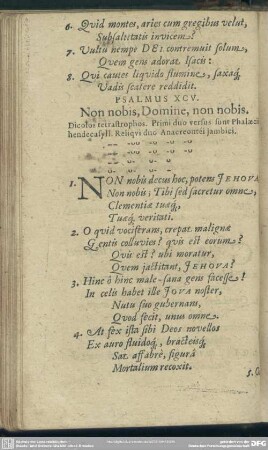 6. Quid montes, aries cum gregibus velut,
Subsaltatis invicem?
7. Vultu nempe DEI contremuit solum,
Quem gens adorat Isaci:
8. Qui cautes liquido flumine, saxaq́;
Vadis scatere reddidit.
PSALMUS XCV.
Non nobis, Domine, non nobis.
Dicolos tetrastrophos. Primi duo versus sunt Phalæcii
hendecasyll. Reliqvi duo Anacreontéi jambici.
1. NON nobis decus hoc, potens JEHOVA
Non nobis; Tibi sed sacretur omne,
Clementiæ tuaq́;
Tuaq́; veritati.
2. O quid vociferans, crepat malignæ
Gentis colluvies? quis est eorum?
Quis est? ubi moratur,
Quem jactitant, JEHOVA?
3. Hinc ô hinc male-sana gens facesse!
In celis habet ille JOVA noster,
Nutu suo gubernans,
Quod fecit, unus omne.
4. At fex ista sibi Deos novellos
Ex auro fluidoq́;, bracteisq́;
Sat affabrè, figurâ
Mortalium recoxit.